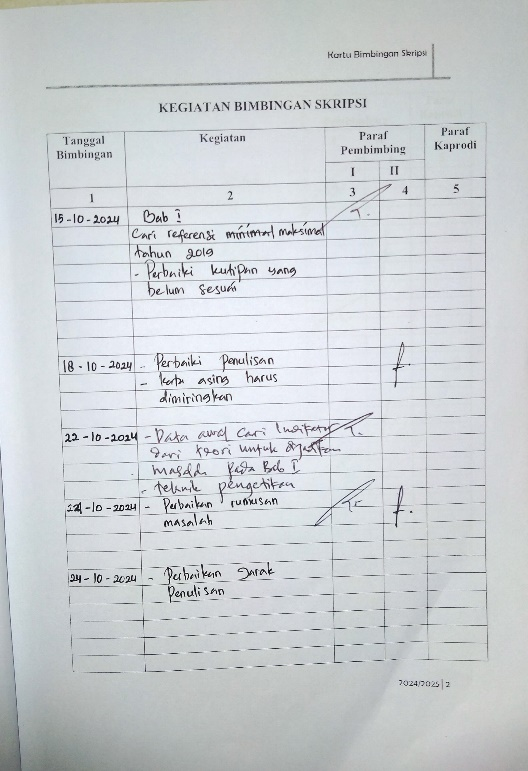 Kartu Bimbingan Skripsi
KEGIATAN BIMBINGAN SKRIPSI
Tanggal Bimbingan
Kegiatan
Paraf Pembimbing
Paraf Kaprodi
I II
1 2 3 4 5
15-10-2024 Bab I
Cari referensi minimal maksimal
tahun 2019
- Perbaiki kutipan yang
belum sesuai
18-10-2024 - Perbaiki penulisan
- kata asing harus
dimiringkan
22-10-2024 - Data awal cari Indikator
dari teori untuk dijadikan
masalah pada Bab I
- teknik pengetikan
24-10-2024 - Perbaikan rumusan
masalah
24-10-2024 - Perbaikan Jarak
Penulisan
2024/2025 | 2